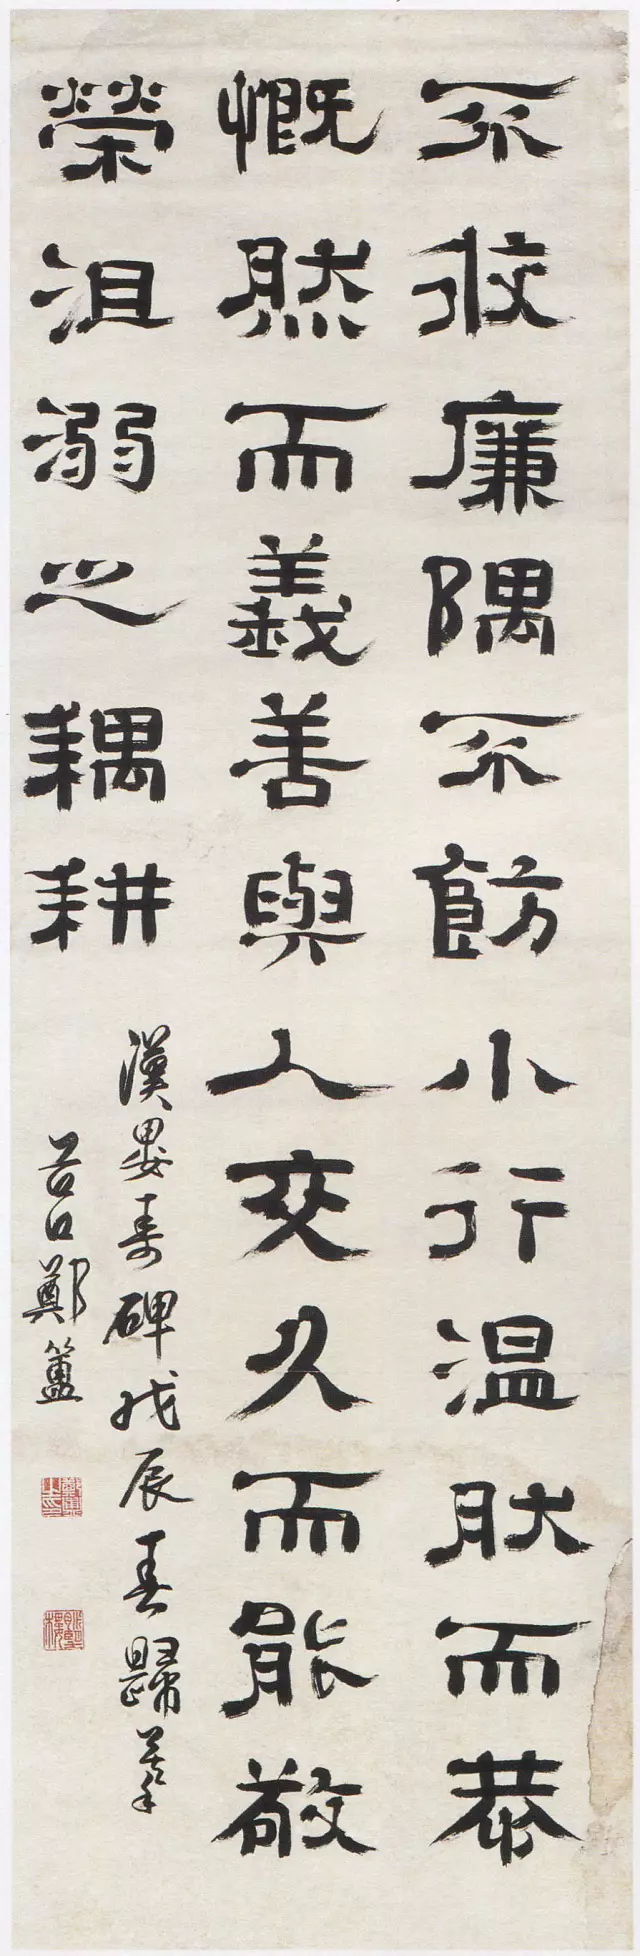 不攸廉隅不飭小行温肰而恭
慨然而義善與人交久而能敬
榮沮溺之耦耕
漢婁壽碑戊辰春歸摹
谷口鄭簠
鄭簠之印